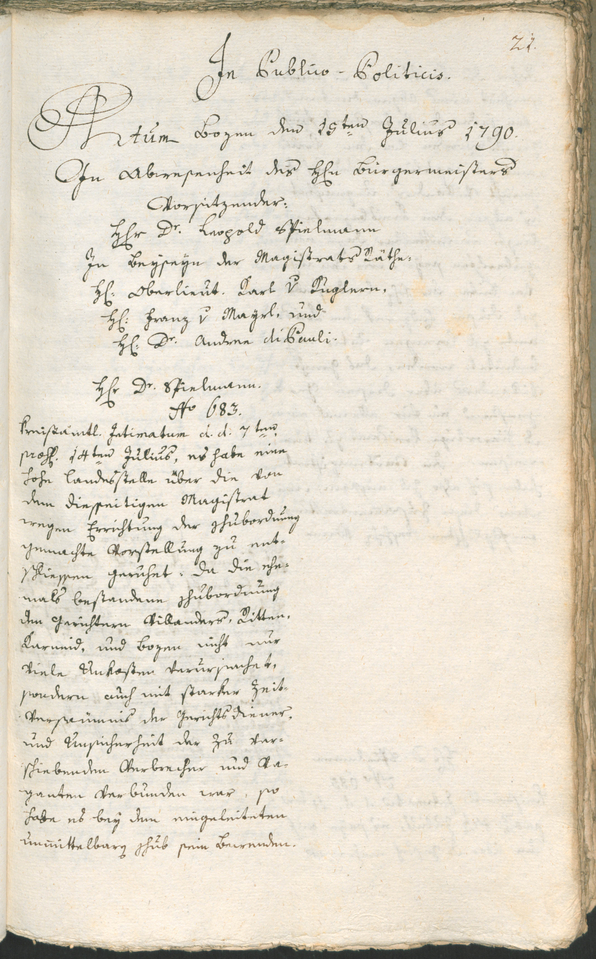 21.
In Publico-Politicis.
Actum Bozen den 19ten Julius 1790.
In Abwesenheit des Hhn Bürgermeisters
Vorsitzender:
Hhr Dr. Leopold Spielmann
In Beyseyn der Magistrats Räthe:
H: Oberlieut. Karl v Kuglern,
H: Franz v Mayrl, und
H: Dr. Andree di Pauli.
Hhr Dr. Spielmann.
Nro 683.
Kreisämtl. Intimatum d. d. 7ten
14ten Julius, es habe eine
hohe Landesstelle über die von
dem diesseitigen Magistrat
wegen Errichtung der Schubordnung
gemachte Vorstellung zu ent-
schliessen geruhet: Da die ehe-
mals bestandene Schubordnung
den Gerichtern Villanders, Ritten,
Karneid, und Bozen nicht nur
viele Unkosten verursachet,
sondern auch mit starker Zeit-
versäumnis der Gerichtsdiener,
und Unsicherheit der zu ver-
schiebenden Verbrecher und Va-
ganten verbunden war, so
habe es bey dem eingeleiteten
unmittelbarn Schub sein Bewenden.